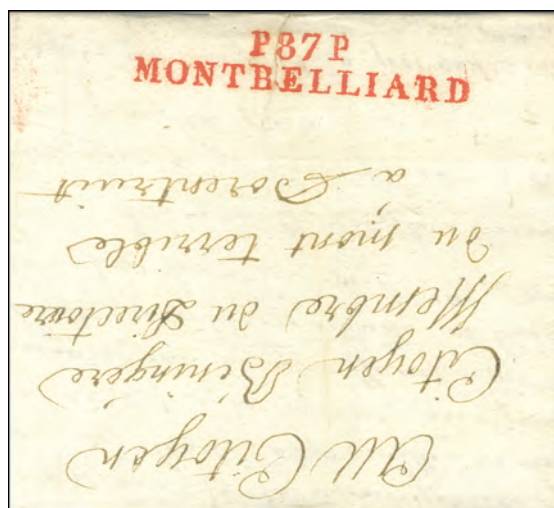 P87P
MONTBELLIARD
Au Citoyen
Citoyen Béningère
Membre du Directoire
du mont terrible
a Porentruit